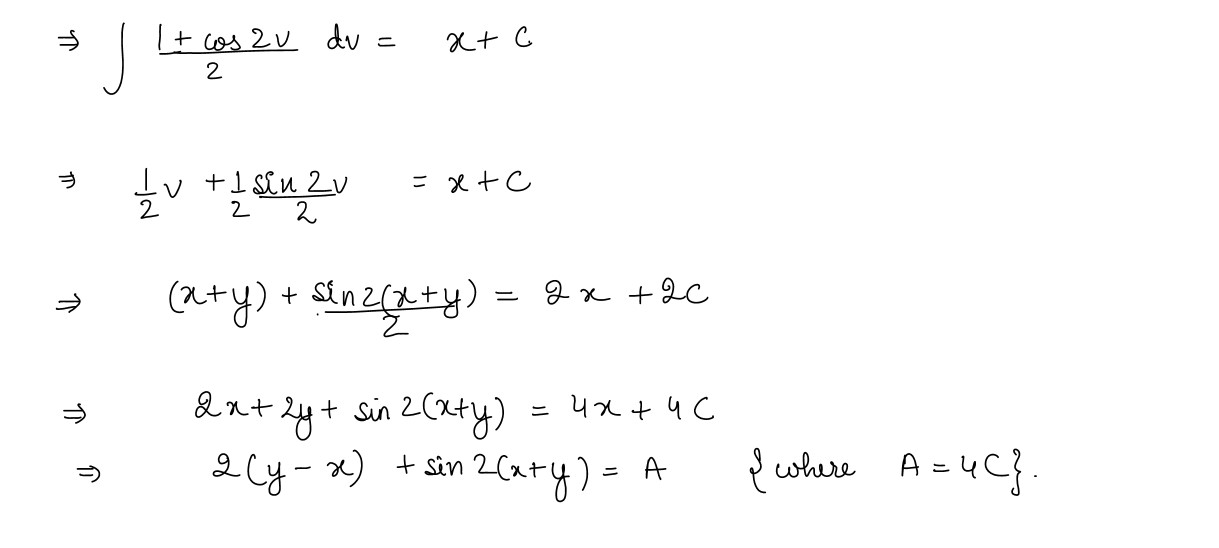 ⇒ ∫ (1 + cos 2v)/2 dv = x + c
⇒ 1/2 v + 1/2 (sin 2v)/2 = x + c
⇒ (x+y) + (sin 2(x+y))/2 = 2x + 2c
⇒ 2x + 2y + sin 2(x+y) = 4x + 4c
⇒ 2(y - x) + sin 2(x+y) = A {where A = 4c}.